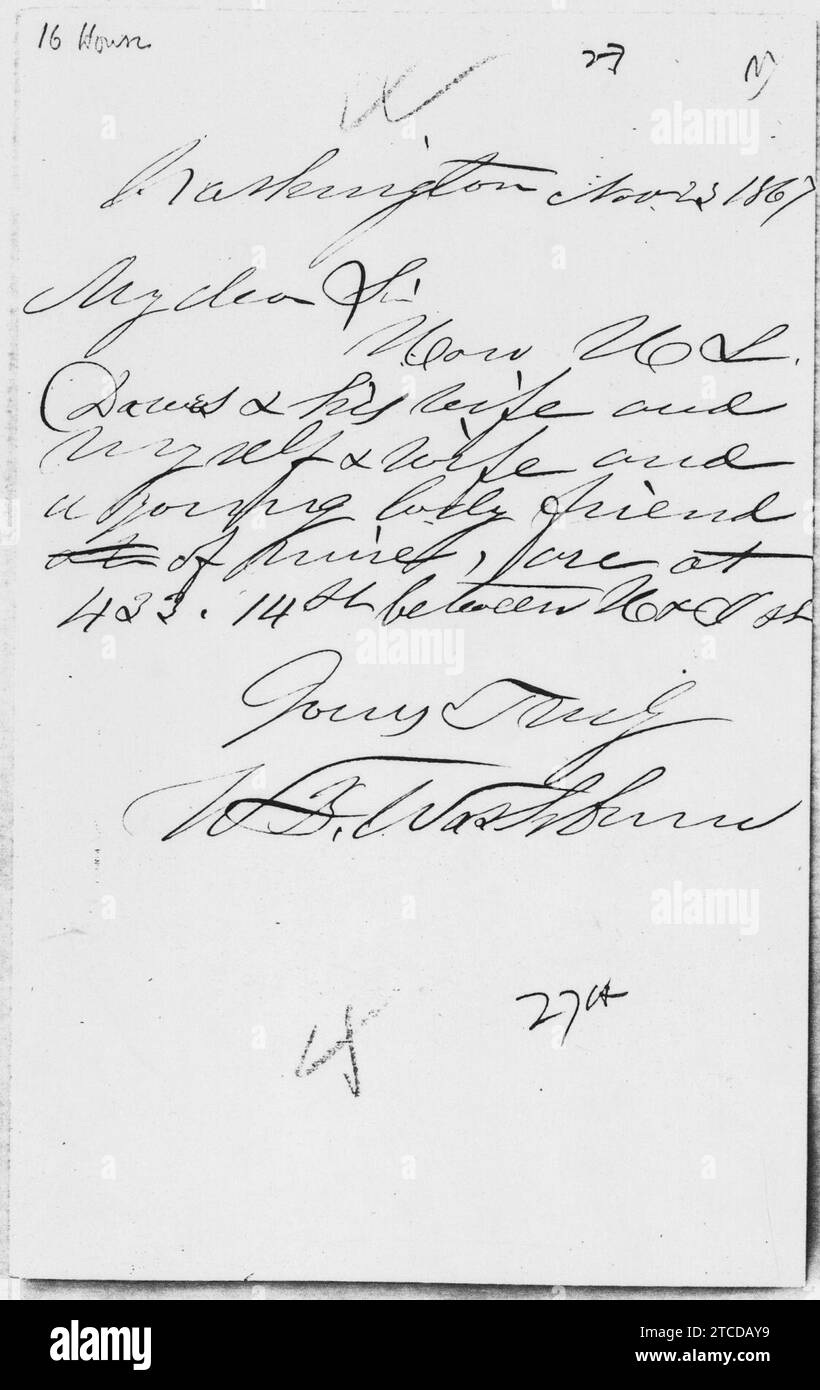 16 House
27
Washington Nov. 23 1867
My dear Sir
Hon H L.
Dawes & his wife and
myself & wife and
a young lady friend
of mine, are at
433. 14th between H & I st
Yours Truly
W. B. Washburn
27th
4
alamy
Image ID: 2TCDAY9
www.alamy.com